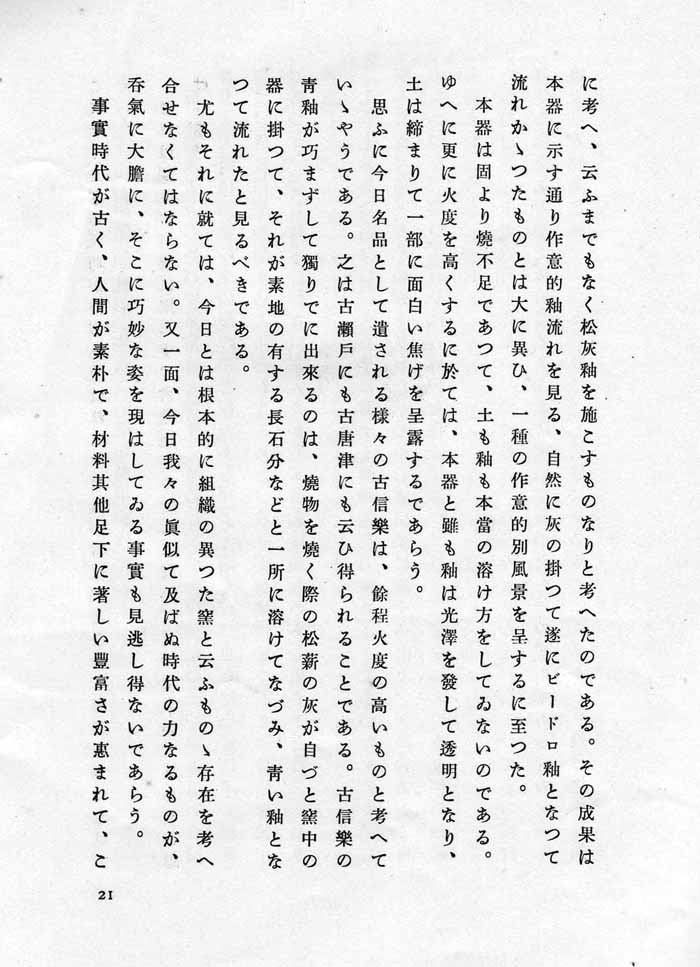 に考へ、云ふまでもなく松灰釉を施こすものなりと考へたのである。その成果は
本器に示す通り作意的釉流れを見る、自然に灰の掛つて遂にビードロ釉となつて
流れかゝつたものとは大に異ひ、一種の作意的別風景を呈するに至つた。
本器は固より燒不足であつて、土も釉も本當の溶け方をしてゐないのである。
ゆへに更に火度を高くするに於ては、本器と雖も釉は光澤を發して透明となり、
土は締まりて一部に面白い焦げを呈露するであらう。
思ふに今日名品として遺される樣々の古信樂は、餘程火度の高いものと考へて
いゝやうである。之は古瀬戸にも古唐津にも云ひ得られることである。古信樂の
靑釉が巧まずして獨りでに出來るのは、燒物を燒く際の松薪の灰が自づと窯中の
器に掛つて、それが素地の有する長石分などと一所に溶けてなづみ、靑い釉とな
つて流れたと見るべきである。
尤もそれに就ては、今日とは根本的に組織の異つた窯と云ふものゝ存在を考へ
合せなくてはならない。又一面、今日我々の眞似て及ばぬ時代の力なるものが、
呑氣に大膽に、そこに巧妙な姿を現はしてゐる事實も見逃し得ないであらう。
事實時代が古く、人間が素朴で、材料其他足下に著しい豐富さが惠まれて、こ
21